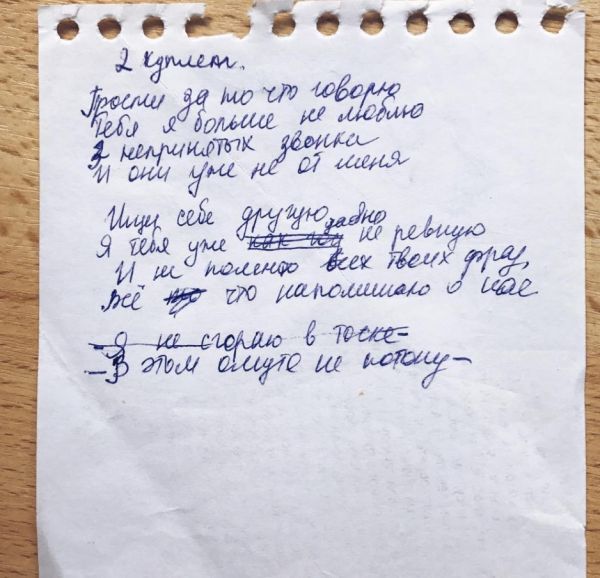 2 куплет.
Прости за то что говорю
Тебя я больше не люблю
3 непринятых звонка
И они уже не от меня
Ищи себе другую
Я тебя уже давно не ревную
И не помню всех твоих фраз,
Всё что напоминало о нас
Я не сгораю в тоске
В этом омуте не потону